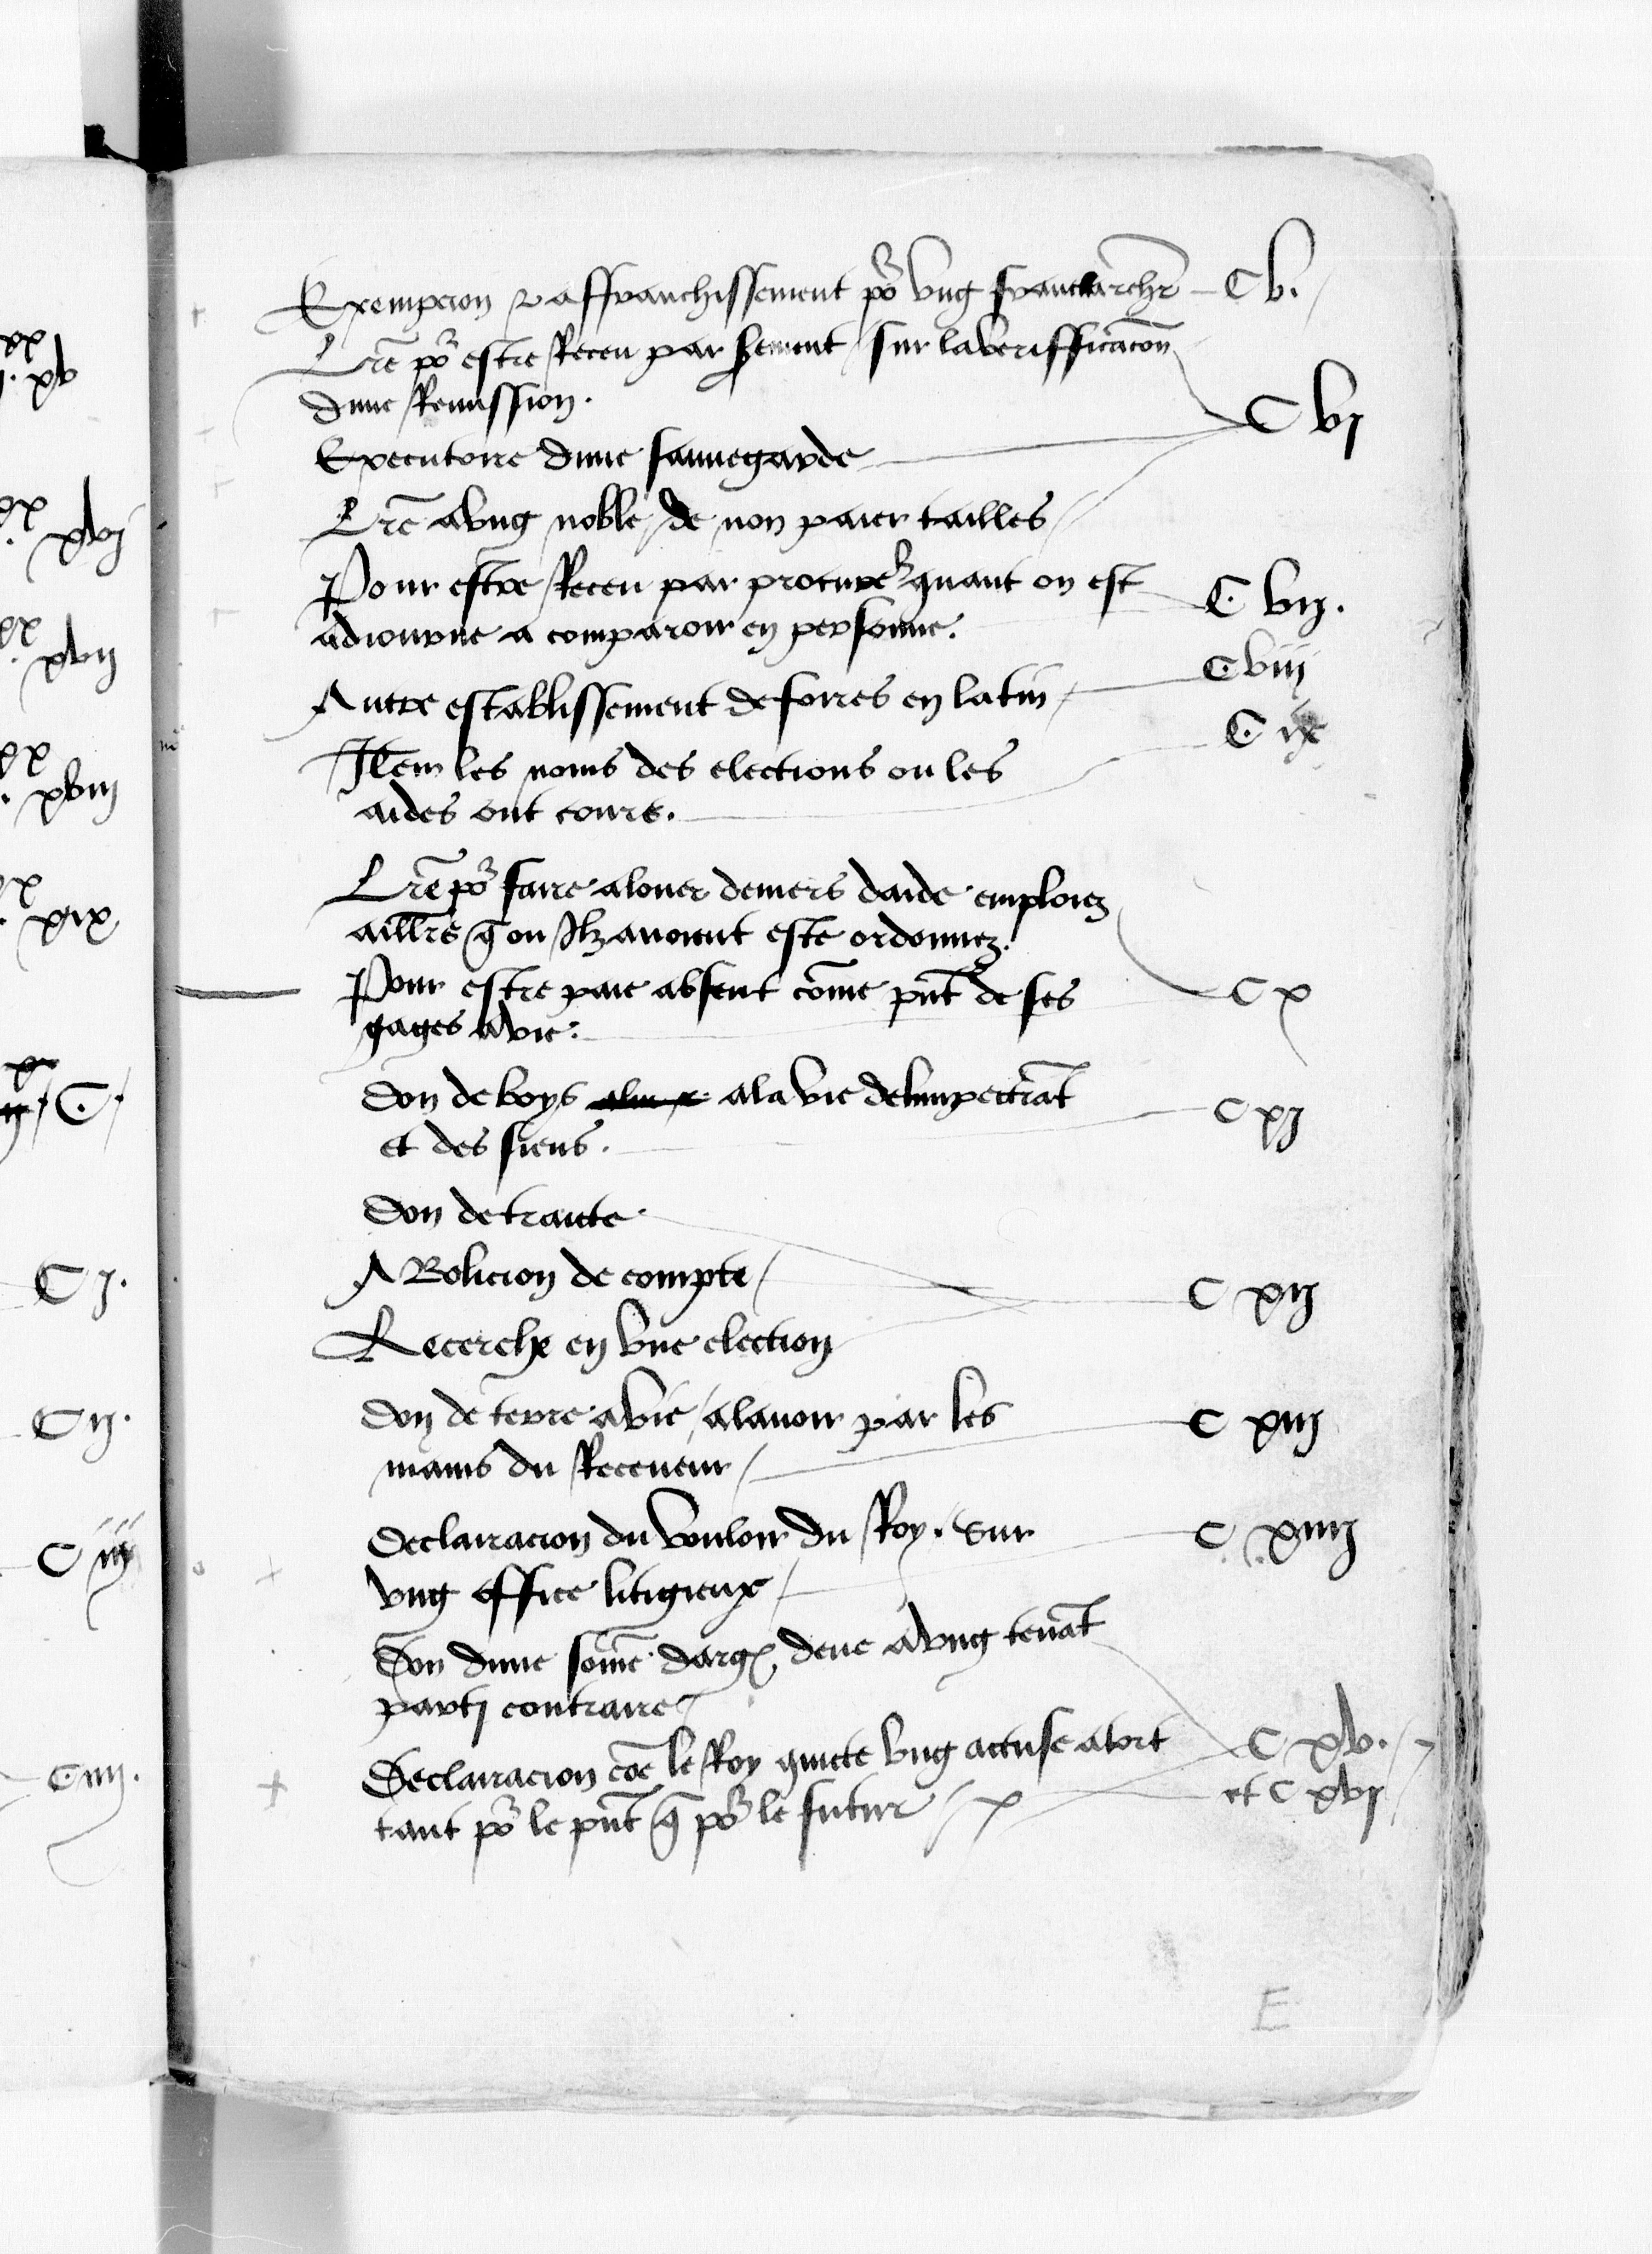 xx
. xv
xx
. xvj
xx
. xvij
xx
. xviij
xx
. xix
C.
C j.
C ij.
C iij
C iiij.
Exempcion & affranchissement po~ ung franc archr~ C v.
Lre~ po~ estre Receu par serment / sur la verifficacon~
dune Remission.
C vj
Executoire dune sauvegarde
Lre~ a ung noble / de non paier tailles /
Pour estre Receu par procure~ quant on est
adiourne a comparoir en personne.
C vij.
Autre establissement de foires en latin /
C viij
Item les noms des elections ou les
aides ont cours.
C ix
Lre~ po~ faire alouer deniers daide emploiez
aillrs~ q~ ou Ilz avoient este ordonnez.
Pour estre paie absent co~me pn~t de ses
gages a vie.
C x
Don de boys a la vie de limpectrat~
et des siens.
C xj
Don de traicte
ABolicion de compte /
C xij
Recerche en une election
Don de terre a vie / a lavoir par les
mains du Receveur /
C xiij
Declairacion du vouloir du Roy. Sur
ung office litigieux /
C xiiij
Don dune som~e darg~ deue a ung tenat~
parti contraire
Declairacion co~e le Roy quicte ung accuse a tort
tant po~ le pn~t q~ po~ le futur /
C xv.
et C xvj
E